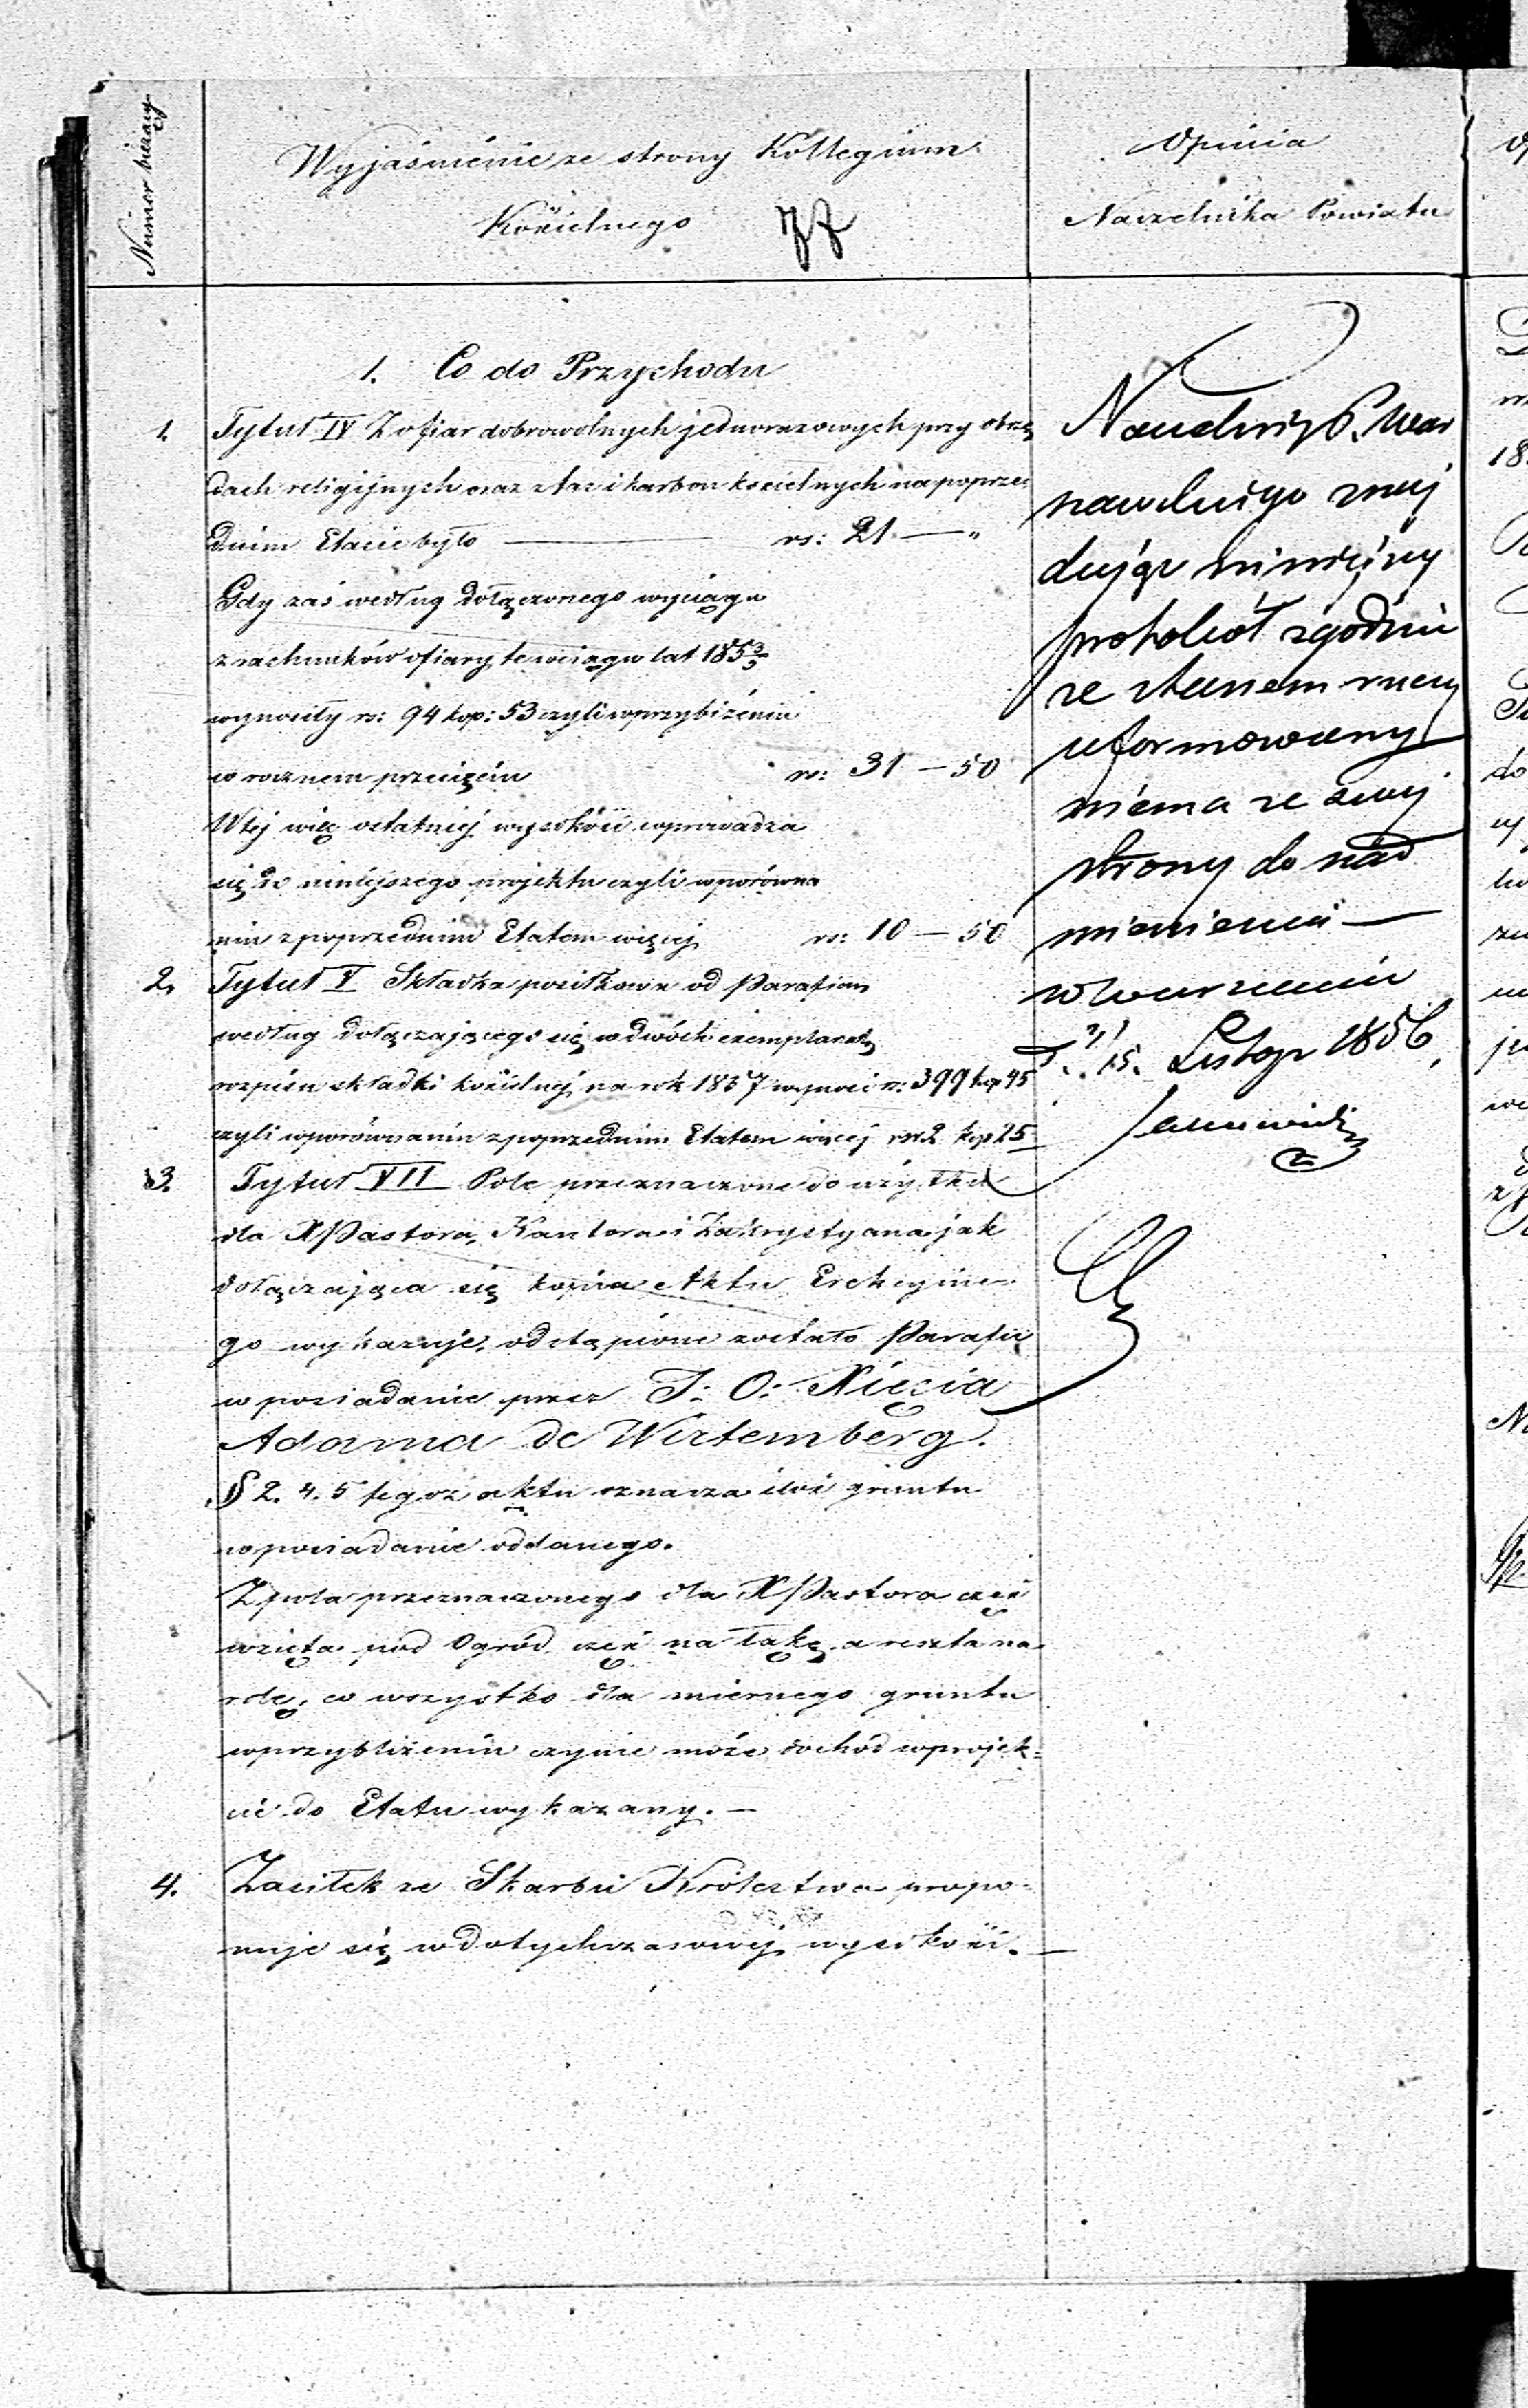 Numer bieżący
Wyjaśnienie ze strony Kollegium
Kościelnego
Opinia
Naczelnika Powiatu
1. Co do Przychodu
1. Tytuł IV Z ofiar dobrowolnych jednorazowych przy obrzę
dach religijnych oraz z tac i karbon kościelnych na poprze
dnim Etacie było — rs: 21 — „
Gdy zaś według dołączonego wyciągu
z rachunków ofiary te w ciągu lat 185 3/5
wynosiły rs: 94 kop: 53 czyli w przybliżeniu
w rocznem przecięciu rs: 31 — 50
W tej więc ostatniej wysokości wprowadza
się do niniejszego projektu czyli w porówna
niu z poprzednim Etatem więcej rs: 10 — 50
2. Tytuł V Składka posiłkowa od Parafian
według dołączającego się w dwóch exemplarzach
rozpisu składki kościelnej na rok 1857 wynosi rs: 399 kop 45
czyli w porównaniu z poprzednim Etatem więcej rs: 2 kop 25
3. Tytuł VII Pole przeznaczone do użytku
dla X Pastora, Kantora i Zakrystyana jak
dołączająca się kopia Aktu Erekcyjne
go wykazuje, odstąpione zostało Parafii
w posiadanie przez J: O: Xięcia
Adama de Wirtemberg.
§ 2. 4. 5 tegoż aktu oznacza ilość gruntu
w posiadanie oddanego.
Z pola przeznaczonego dla X Pastora część
wzięta pod Ogród część na łąkę a reszta na
rolę, co wszystko dla miernego gruntu
w przybliżeniu czynić może dochód w projek=
cie do Etatu wykazany. —
4. Zasiłek ze Skarbu Królestwa propo-
nuje się w dotychczasowej wysokości. —
znaj
dując niniejszy
protokół zgodnie
ze stanem rzeczy
uformowany
niema ze swej
strony do nad
mienienia —
w Warszawie
d. 3/15. Listop 1856